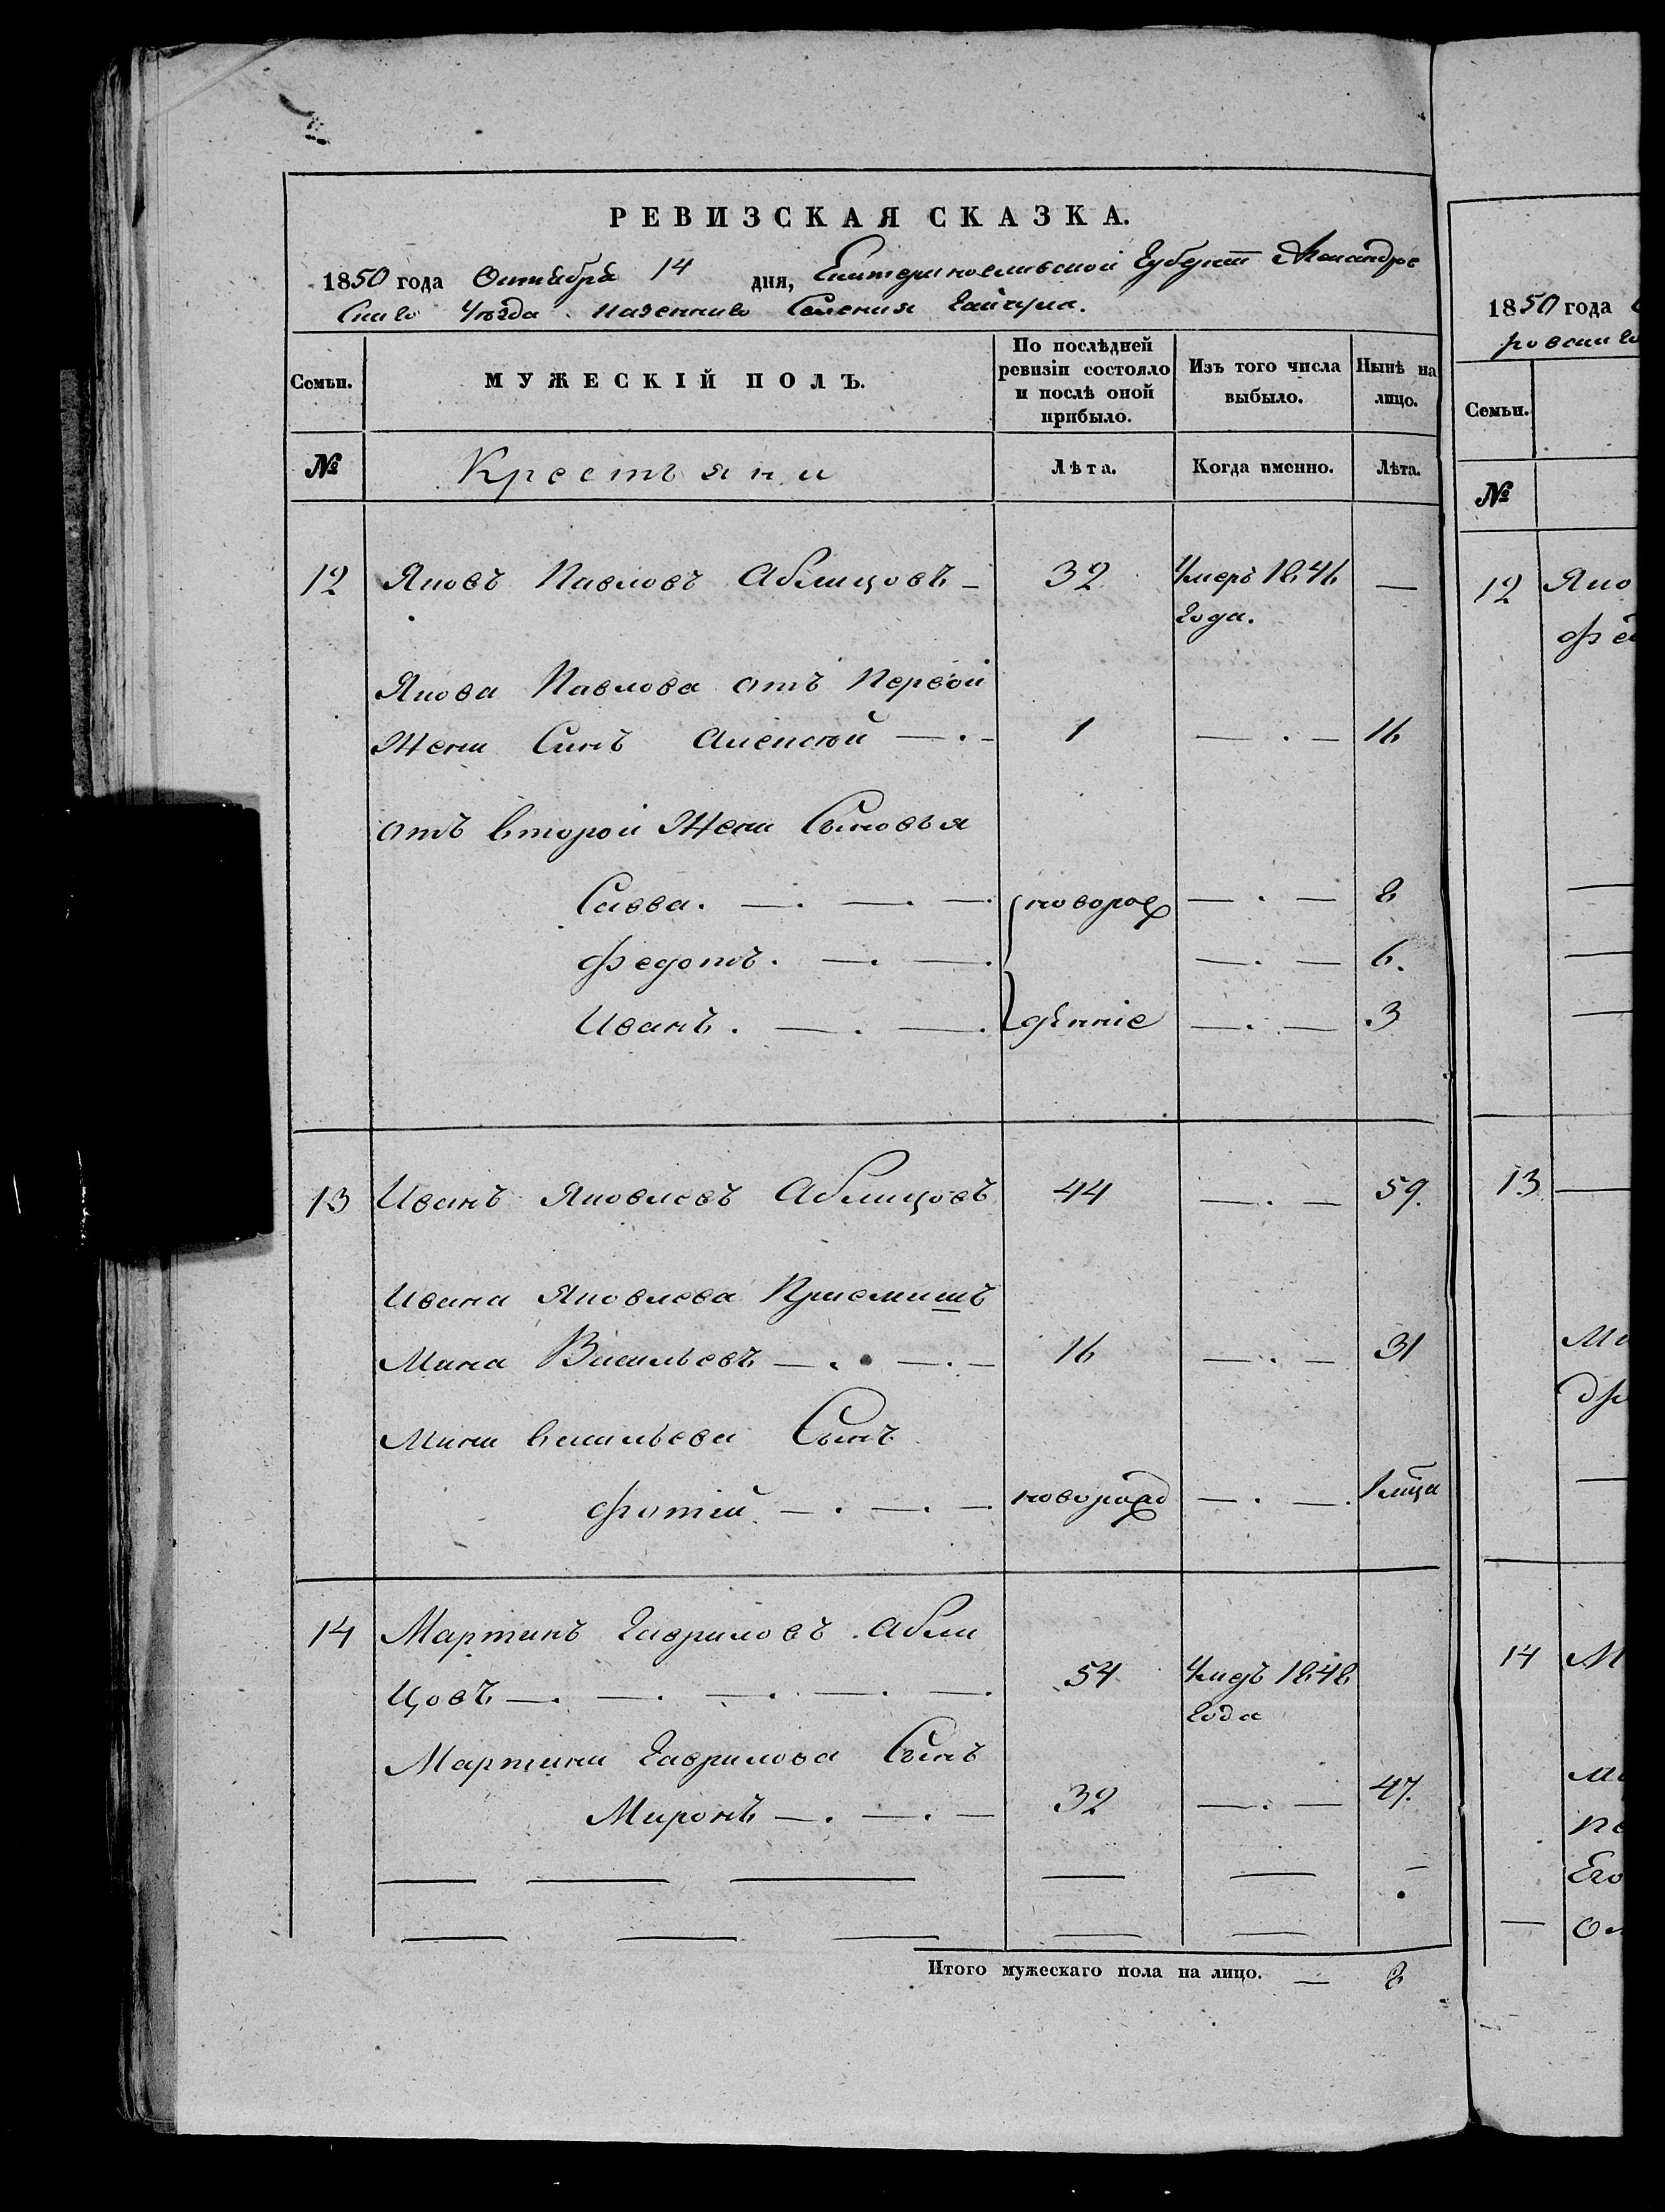 РЕВИЗСКАЯ СКАЗКА.
1850 года Октября 14 дня, Екатеринославской Губерніи Александров
скаго Уѣзда казеннаго Селенія Гайчула.
Семьи. МУЖЕСКІЙ ПОЛЪ. По послѣдней ревизіи состояло и послѣ оной прибыло. Изъ того числа выбыло. Нынѣ на лицо.
№ Крестьяни Лѣта. Когда именно. Лѣта.
12 Яковъ Павловъ Аблицовъ — 32 Умеръ 1846 —
года.
Якова Павлова отъ Первой
Жени Синъ Алексѣй — . — 1 — . — 16
отъ второй Жени Сыновья
Савва. — . — . — новорож — . — 8
Федотъ. — . — . — . — 6.
Иванъ. — . — . денніе — . — 3
13 Иванъ Яковлевъ Аблицовъ 44 — . — 59.
Ивана Яковлева Приемишъ
Мина Васильевъ — . — . — 16 — . — 31
Мини васильева Сынъ
Фотій — . — . — новорожд — . — . 1 мца
14 Мартинъ Гавриловъ Абли
цовъ — . — . — . — . — . 54 Умеръ 1848
года
Мартина Гаврилова Сынъ
Миронъ — . — . — 32 — . — 47.
Итого мужескаго пола на лицо. — 8
1850 года
ровскаго
Семьи.
№
12 Яко
13
14 М